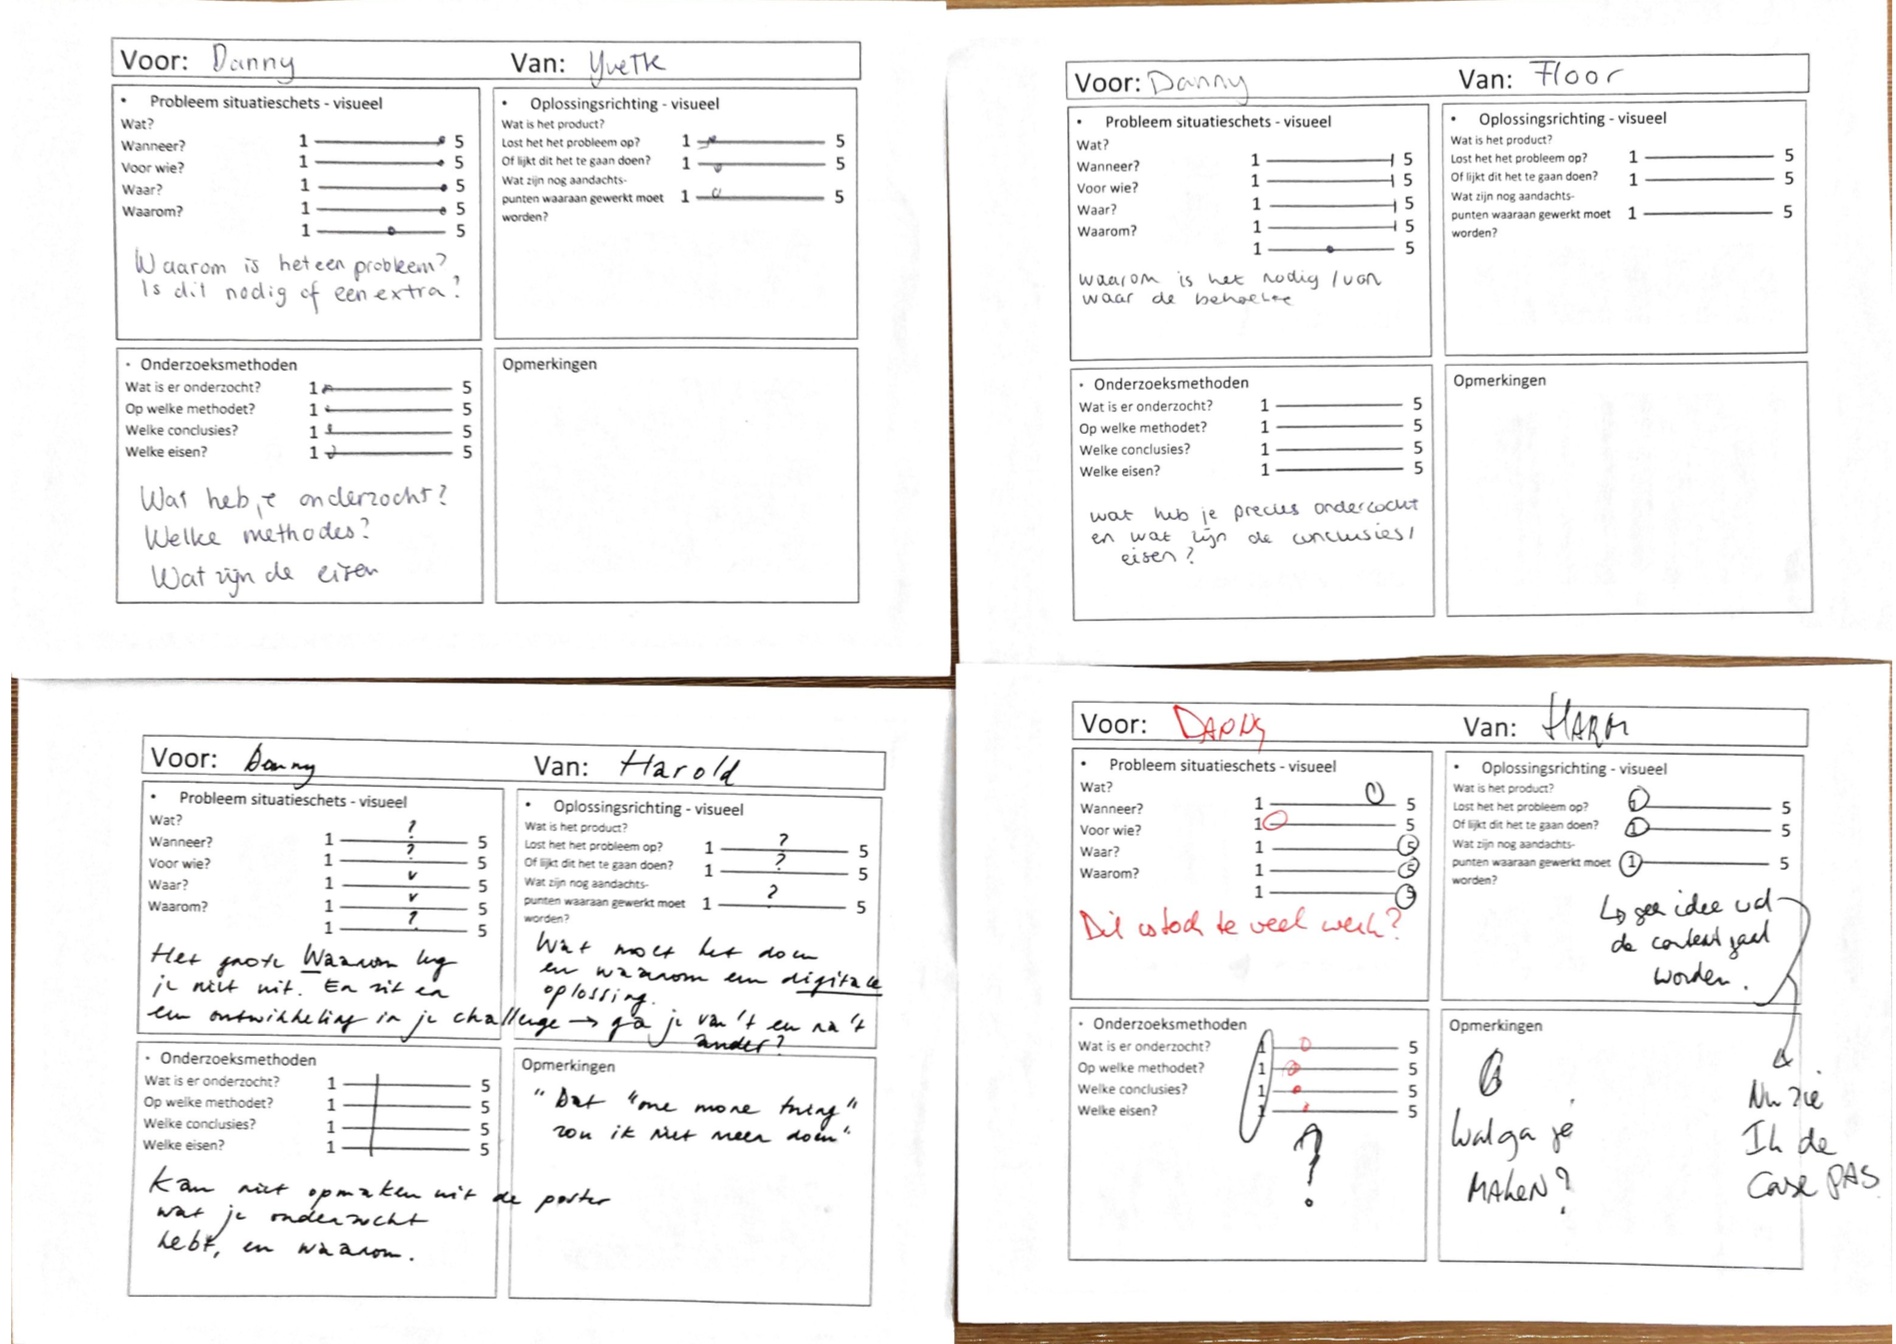 Voor: Danny Van: Yvette
• Probleem situatieschets - visueel
Wat?
Wanneer? 1 5
Voor wie? 1 5
Waar? 1 5
Waarom? 1 5
1 5
Waarom is het een probleem?
Is dit nodig of een extra?
• Oplossingsrichting - visueel
Wat is het product?
Lost het het probleem op? 1 5
Of lijkt dit het te gaan doen? 1 5
Wat zijn nog aandachts-
punten waaraan gewerkt moet 1 5
worden?
• Onderzoeksmethoden
Wat is er onderzocht? 1 5
Op welke methodet? 1 5
Welke conclusies? 1 5
Welke eisen? 1 5
Wat heb je onderzocht?
Welke methodes?
Wat zijn de eisen
Opmerkingen
Voor: Danny Van: Floor
• Probleem situatieschets - visueel
Wat?
Wanneer? 1 5
Voor wie? 1 5
Waar? 1 5
Waarom? 1 5
1 5
waarom is het nodig / van
waar de behoefte
• Oplossingsrichting - visueel
Wat is het product?
Lost het het probleem op? 1 5
Of lijkt dit het te gaan doen? 1 5
Wat zijn nog aandachts-
punten waaraan gewerkt moet 1 5
worden?
• Onderzoeksmethoden
Wat is er onderzocht? 1 5
Op welke methodet? 1 5
Welke conclusies? 1 5
Welke eisen? 1 5
wat heb je precies onderzocht
en wat zijn de conclusies /
eisen?
Opmerkingen
Voor: Danny Van: Harold
• Probleem situatieschets - visueel
Wat? ?
Wanneer? 1 ? 5
Voor wie? 1 5
Waar? 1 v 5
Waarom? 1 v 5
1 ? 5
Het grote Waarom leg
je niet uit. En zit er
een ontwikkeling in je challenge → ga je van 't en na 't
ander?
• Oplossingsrichting - visueel
Wat is het product?
Lost het het probleem op? 1 ? 5
Of lijkt dit het te gaan doen? 1 ? 5
Wat zijn nog aandachts-
punten waaraan gewerkt moet 1 ? 5
worden?
Wat moet het doen
en waarom een digitale
oplossing.
• Onderzoeksmethoden
Wat is er onderzocht? 1 5
Op welke methodet? 1 5
Welke conclusies? 1 5
Welke eisen? 1 5
Kan niet opmaken uit de poster
wat je onderzocht
hebt, en waarom.
Opmerkingen
"Dat "one more thing"
zou ik niet meer doen"
Voor: DANNY Van: HARM
• Probleem situatieschets - visueel
Wat?
Wanneer? 1 5
Voor wie? 1 5
Waar? 1 5
Waarom? 1 5
1 5
Dit is toch te veel werk?
• Oplossingsrichting - visueel
Wat is het product?
Lost het het probleem op? 1 5
Of lijkt dit het te gaan doen? 1 5
Wat zijn nog aandachts-
punten waaraan gewerkt moet 1 5
worden?
↳ geen idee wat
de context gaat
worden.
• Onderzoeksmethoden
Wat is er onderzocht? 1 5
Op welke methodet? 1 5
Welke conclusies? 1 5
Welke eisen? 1 5
?
Opmerkingen
Wat ga je
MAKEN?
Nu zie
Ik de
Case PAS